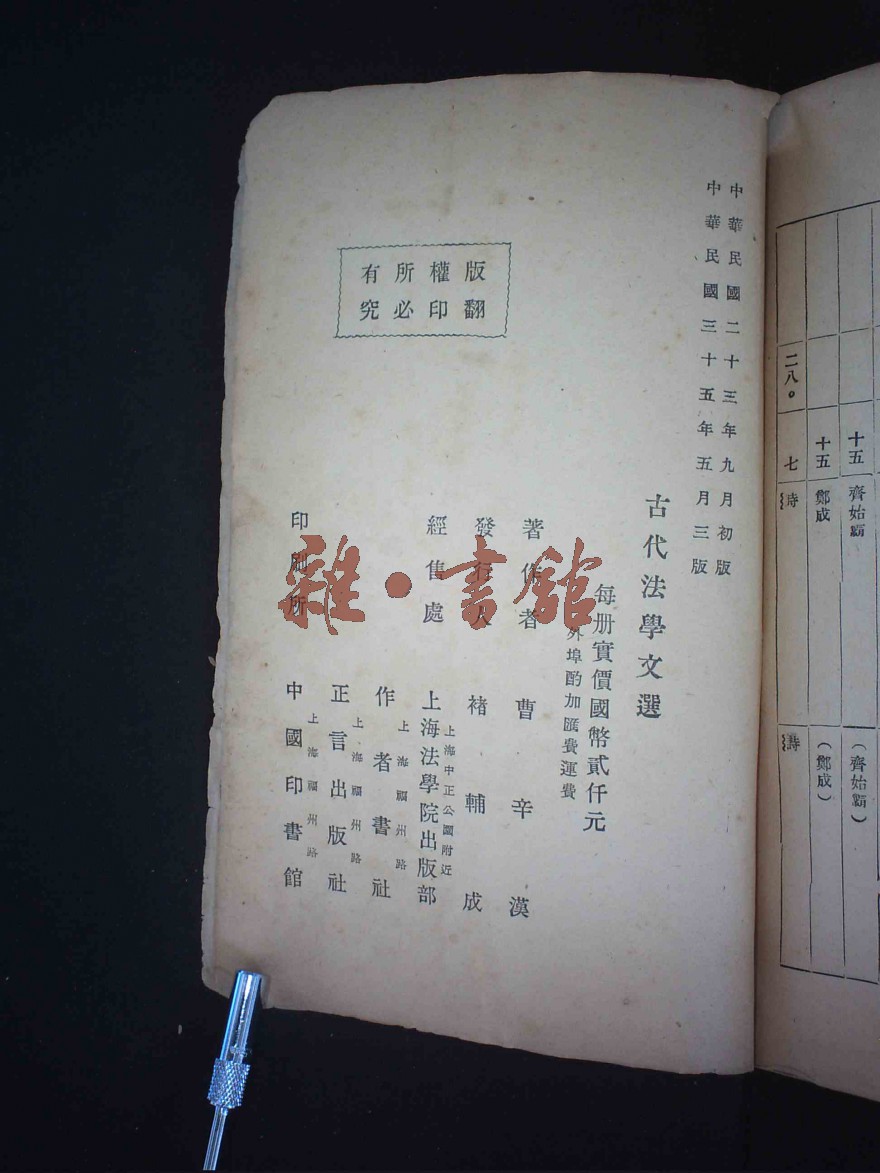 二八。
七
十五
十五
時
鄭成
齊始霸
詩
（鄭成）
（齊始霸）
中華民國二十三年九月初版
中華民國三十五年五月三版
古代法學文選
每册實價國幣貳仟元
外埠酌加匯費運費
著作者 曹辛漢
發行人 褚輔成
經售處
上海中正公園附近
上海法學院出版部
上海福州路
作者書社
上海福州路
正言出版社
印刷所
上海福州路
中國印書館
版權所有
翻印必究
雜·書館